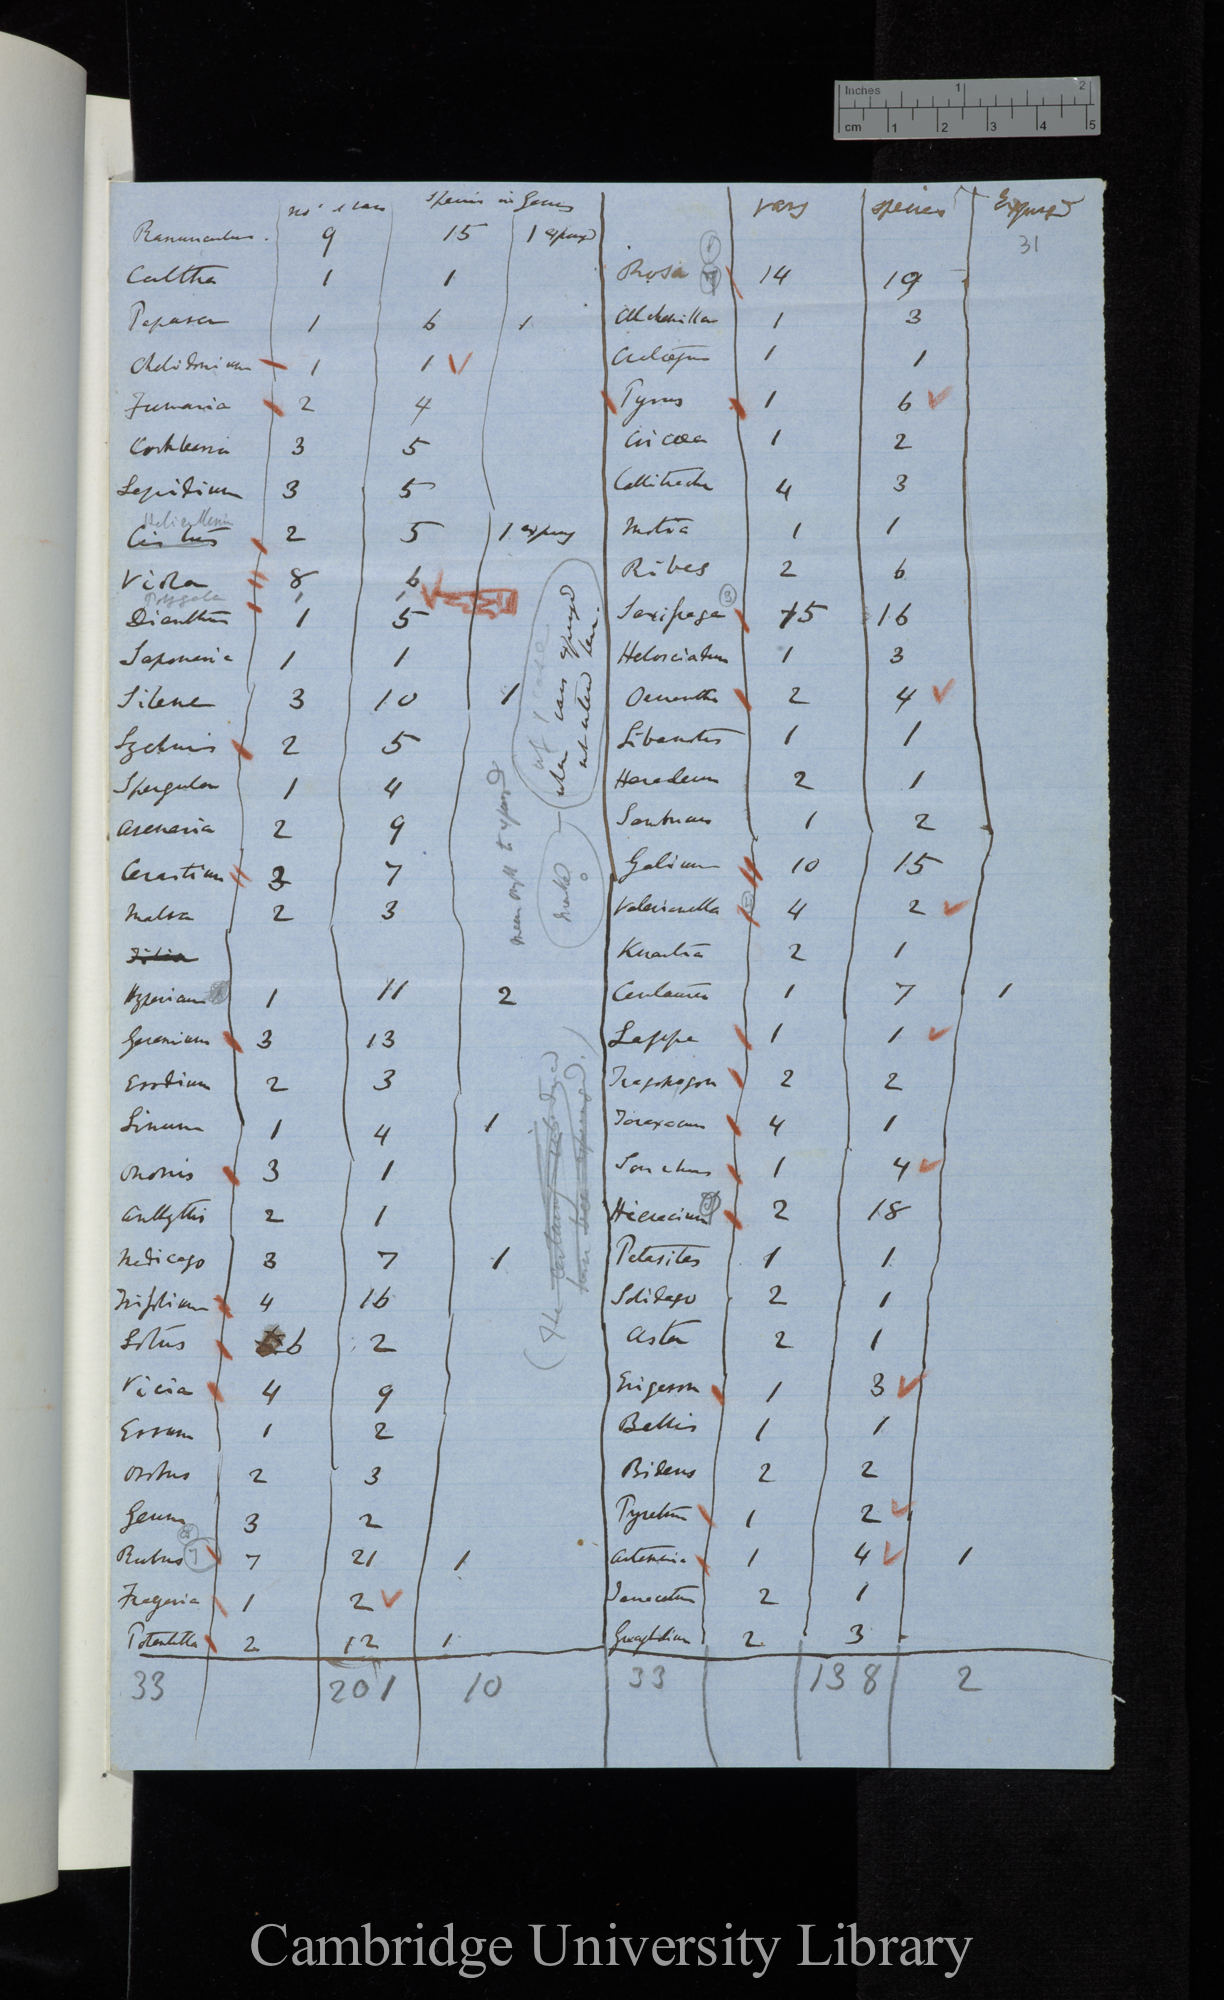 Inches 1 2
cm 1 2 3 4 5
species in Genus
Ranunculus. 9 15 1 expung
Caltha 1 1
Papaver 1 6 1
Chelidonium 1 1
Fumaria 2 4
Cochlearia 3 5
Lepidium 3 5
Helianthemum
Cistus 2 5 1 expung
Viola 8 6
Polygala 1 1
Dianthus 1 5
Saponaria 1 1
Silene 3 10 1
Lychnis 2 5
Spergula 1 4
Arenaria 2 9
Cerastium 3 7
Malva 2 3
Tilia
Hypericum 1 11 2
Geranium 3 13
Erodium 2 3
Linum 1 4 1
Ononis 3 1
Anthyllis 2 1
Medicago 3 7 1
Trifolium 4 16
Lotus 6 2
Vicia 4 9
Ervum 1 2
Orobus 2 3
Geum 3 2
Rubus 7 7 21 1
Fragaria 1 2
Potentilla 2 12 1
33 201 10
vars species Expunged
31
Rosa 14 19
Alchemilla 1 3
Crataegus 1 1
Pyrus 1 6
Circaea 1 2
Callitriche 4 3
Montia 1 1
Ribes 2 6
Saxifraga 3 15 16
Helosciadum 1 3
Oenanthe 2 4
Libanotis 1 1
Heracleum 2 1
Sambucus 1 2
Galium 10 15
Valerianella 4 2
Knautia 2 1
Centaurea 1 7 1
Lappa 1 1
Tragopogon 2 2
Taraxacum 4 1
Sonchus 1 4
Hieracium 2 18
Petasites 1 1
Solidago 2 1
Aster 2 1
Erigeron 1 3
Bellis 1 1
Bidens 2 2
Pyrethrum 1 2
Artemisia 1 4 1
Tanacetum 2 1
Gnaphalium 2 3
33 138 2
Cambridge University Library